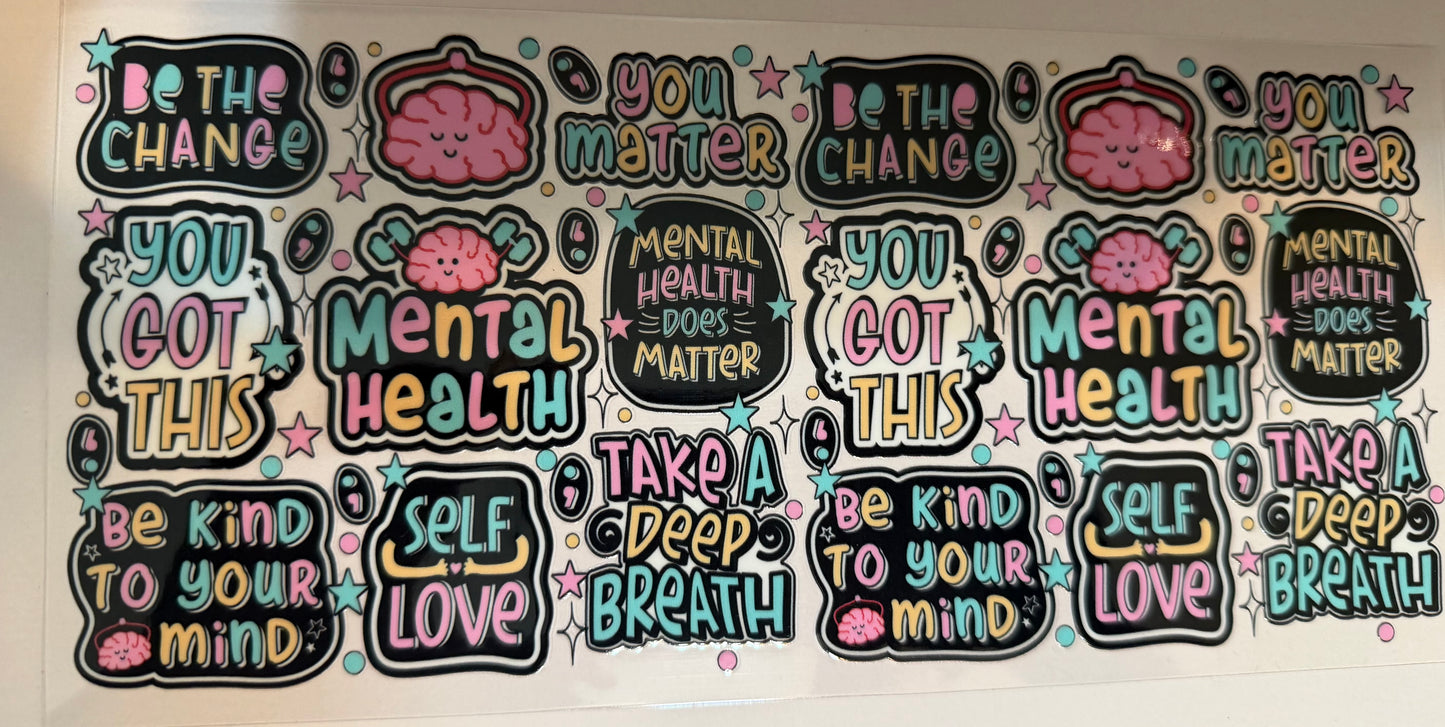 BE THE
CHANGE
YOU
matter
BE THE
CHANGE
YOU
matter
YOU
GOT
THIS
Mental
Health
MENTAL
HEALTH
DOES
MATTER
YOU
GOT
THIS
Mental
Health
MENTAL
HEALTH
DOES
MATTER
BE KIND
TO YOUR
MIND
SELF
LOVE
TAKE A
DEEP
BREATH
BE KIND
TO YOUR
MIND
SELF
LOVE
TAKE A
DEEP
BREATH